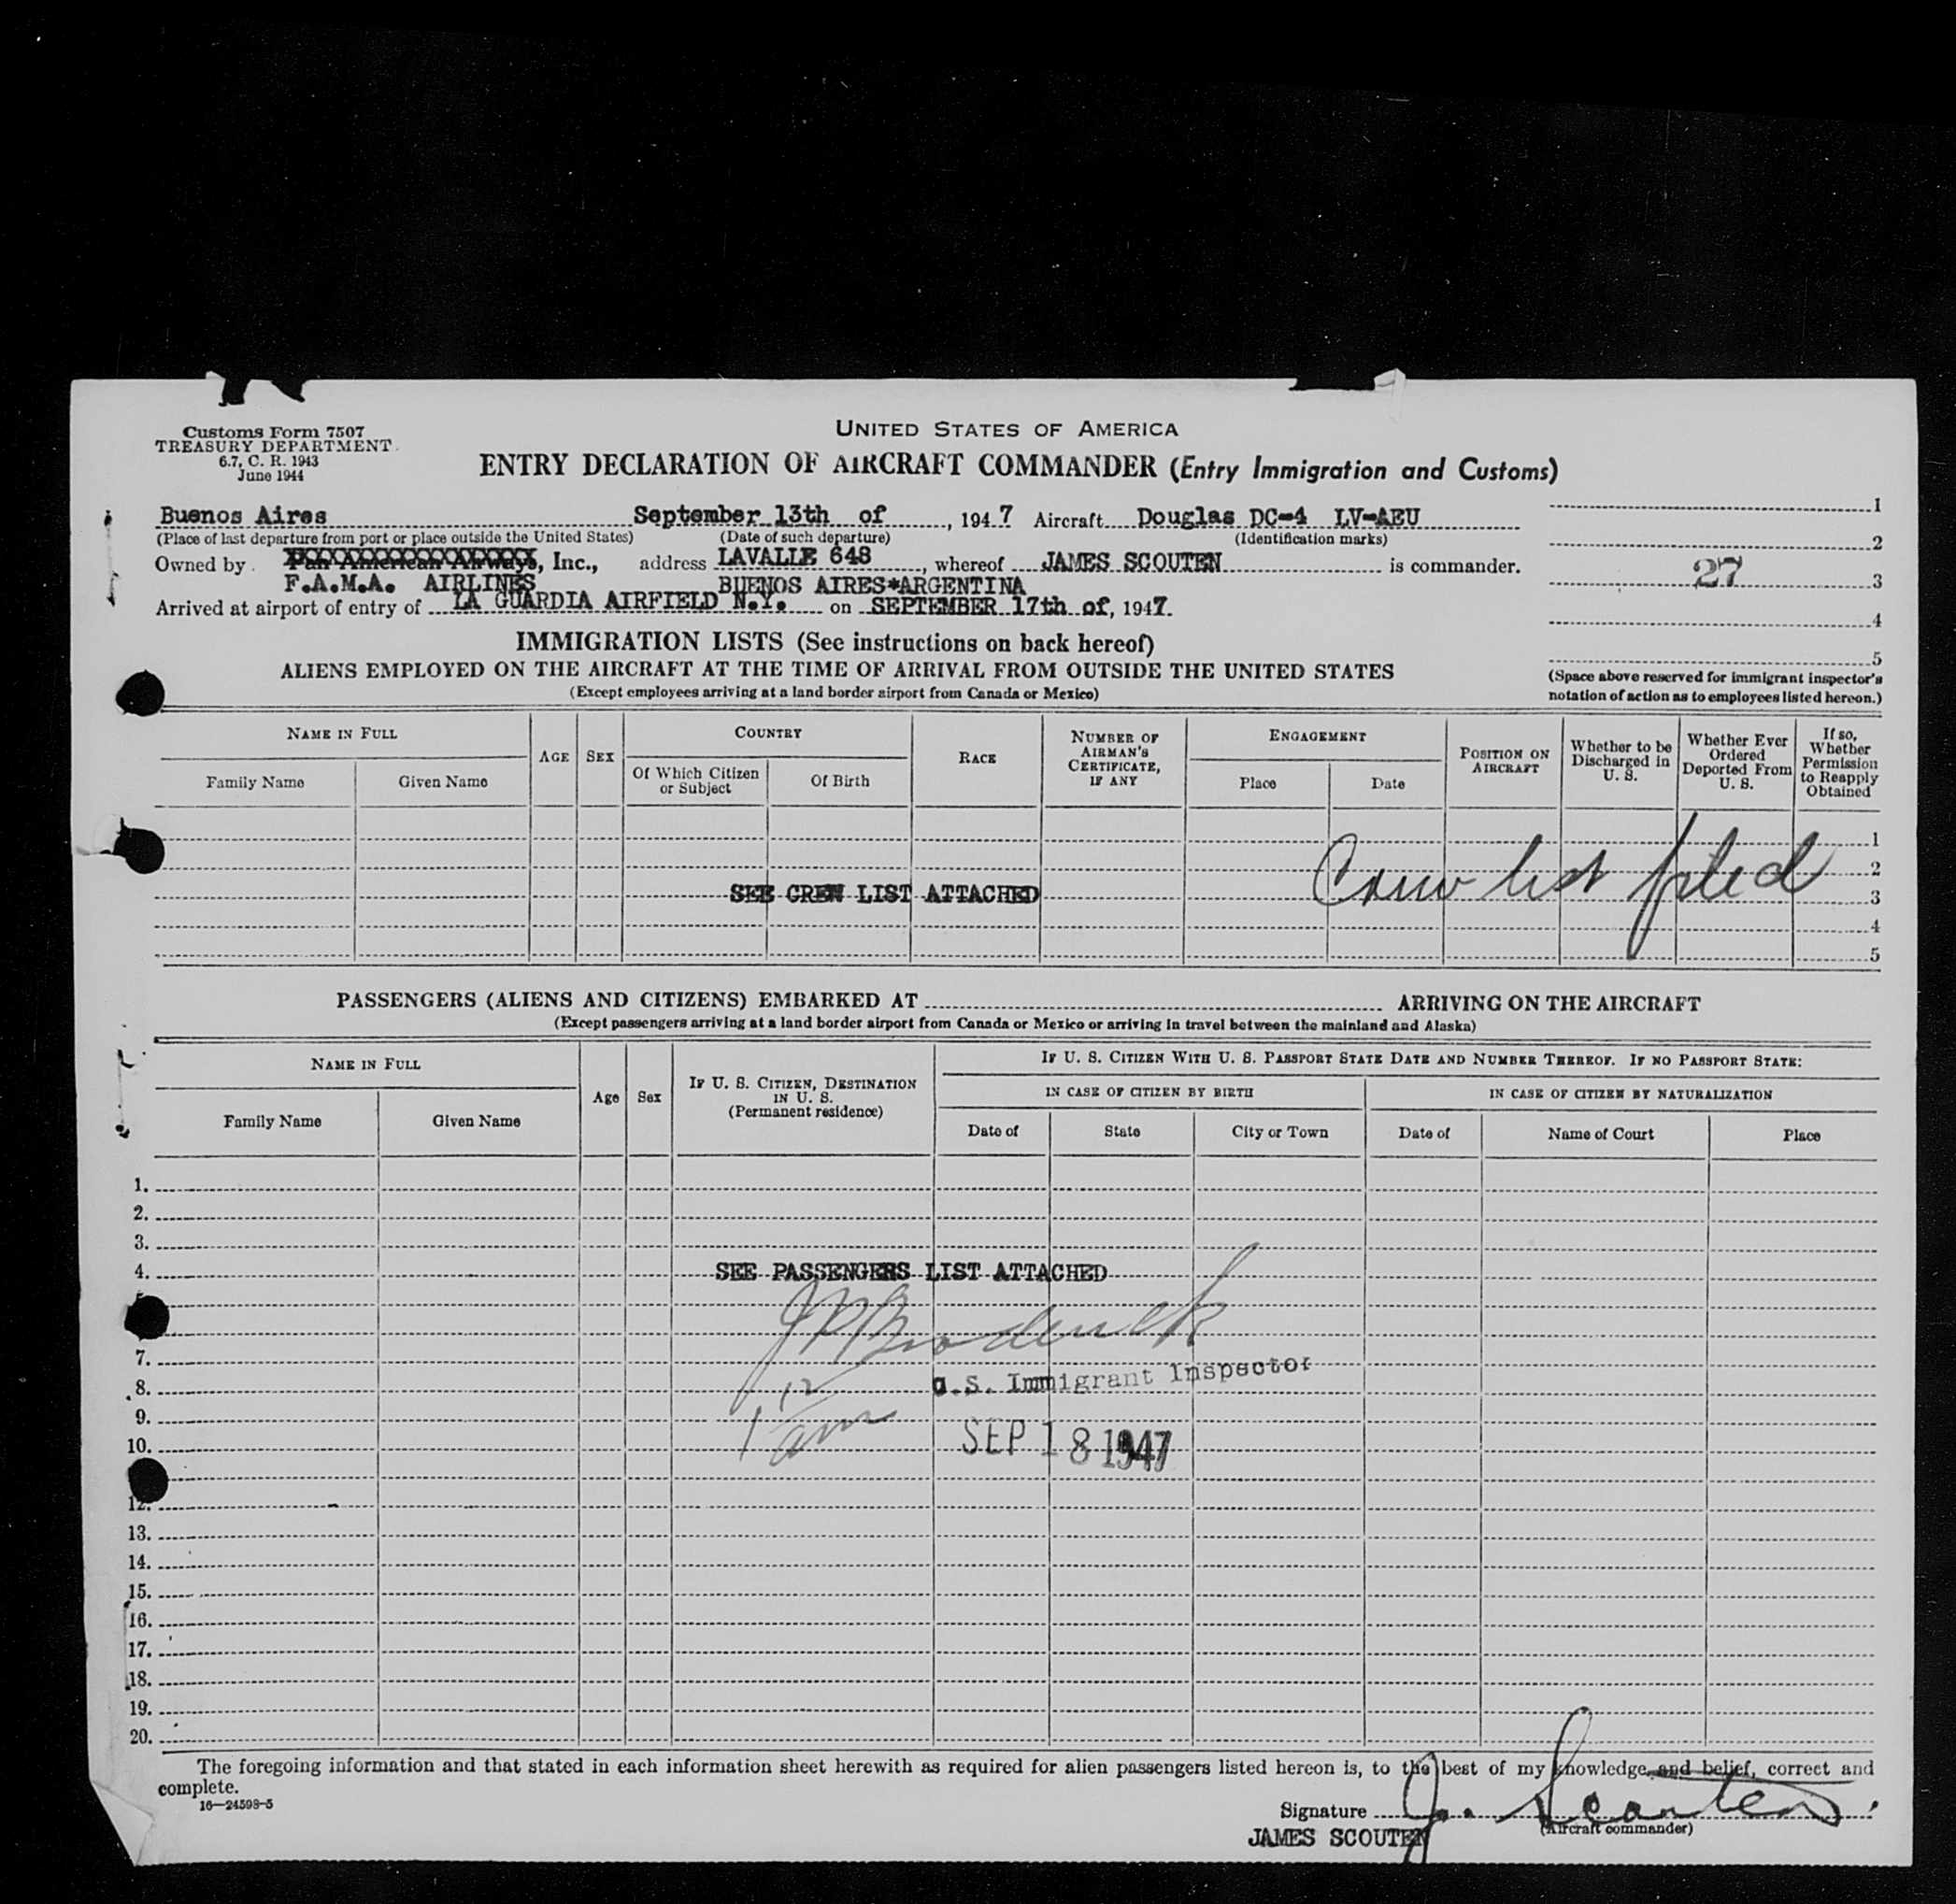 Customs Form 7507
TREASURY DEPARTMENT
6.7, C. R. 1943
June 1944
UNITED STATES OF AMERICA
ENTRY DECLARATION OF AIRCRAFT COMMANDER (Entry Immigration and Customs)
Buenos Aires September 13th of, 1947 Aircraft Douglas DC-4 LV-AEU
(Place of last departure from port or place outside the United States) (Date of such departure) (Identification marks)
Owned by Pan American Airways, Inc., address LAVALLE 648, whereof JAMES SCOUTEN is commander.
F.A.M.A. AIRLINES BUENOS AIRES*ARGENTINA
Arrived at airport of entry of LA GUARDIA AIRFIELD N.Y. on SEPTEMBER 17th of, 1947.
1
2
27 3
4
5
(Space above reserved for immigrant inspector's
notation of action as to employees listed hereon.)
IMMIGRATION LISTS (See instructions on back hereof)
ALIENS EMPLOYED ON THE AIRCRAFT AT THE TIME OF ARRIVAL FROM OUTSIDE THE UNITED STATES
(Except employees arriving at a land border airport from Canada or Mexico)
NAME IN FULL
Family Name Given Name
AGE
SEX
COUNTRY
Of Which Citizen or Subject Of Birth
RACE
NUMBER OF AIRMAN'S CERTIFICATE, IF ANY
ENGAGEMENT
Place Date
POSITION ON AIRCRAFT
Whether to be Discharged in U. S.
Whether Ever Ordered Deported From U. S.
If so, Whether Permission to Reapply Obtained
1
2
SEE CREW LIST ATTACHED Crew list filed 3
4
5
PASSENGERS (ALIENS AND CITIZENS) EMBARKED AT ARRIVING ON THE AIRCRAFT
(Except passengers arriving at a land border airport from Canada or Mexico or arriving in travel between the mainland and Alaska)
NAME IN FULL
Family Name Given Name
Age
Sex
IF U. S. CITIZEN, DESTINATION IN U. S.
(Permanent residence)
IF U. S. CITIZEN WITH U. S. PASSPORT STATE DATE AND NUMBER THEREOF. IF NO PASSPORT STATE:
IN CASE OF CITIZEN BY BIRTH IN CASE OF CITIZEN BY NATURALIZATION
Date of State City or Town Date of Name of Court Place
1.
2.
3.
4. SEE PASSENGERS LIST ATTACHED
J P Broderick
7.
8. U.S. Immigrant Inspector
9. 1 12 am
10. SEP 18 1947
12.
13.
14.
15.
16.
17.
18.
19.
20.
The foregoing information and that stated in each information sheet herewith as required for alien passengers listed hereon is, to the best of my knowledge and belief, correct and
complete.
16—24598-5
Signature J. Scouten
(Aircraft commander)
JAMES SCOUTEN